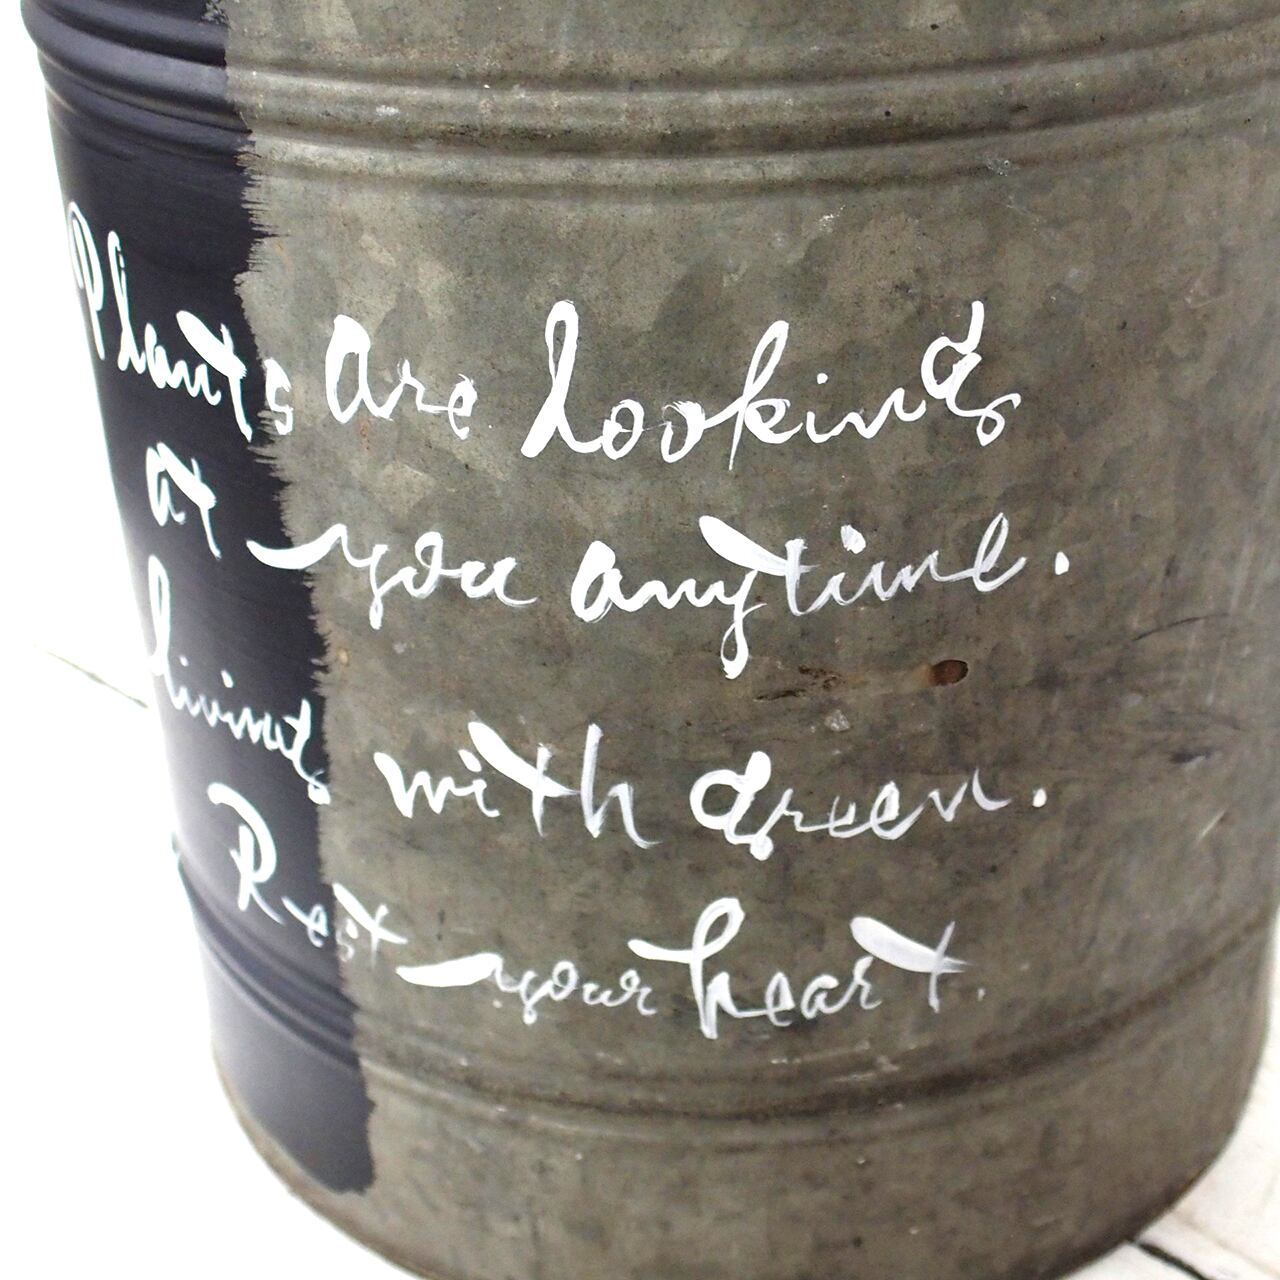 Plants are looking
at you anytime.
living with green.
Rest your heart.